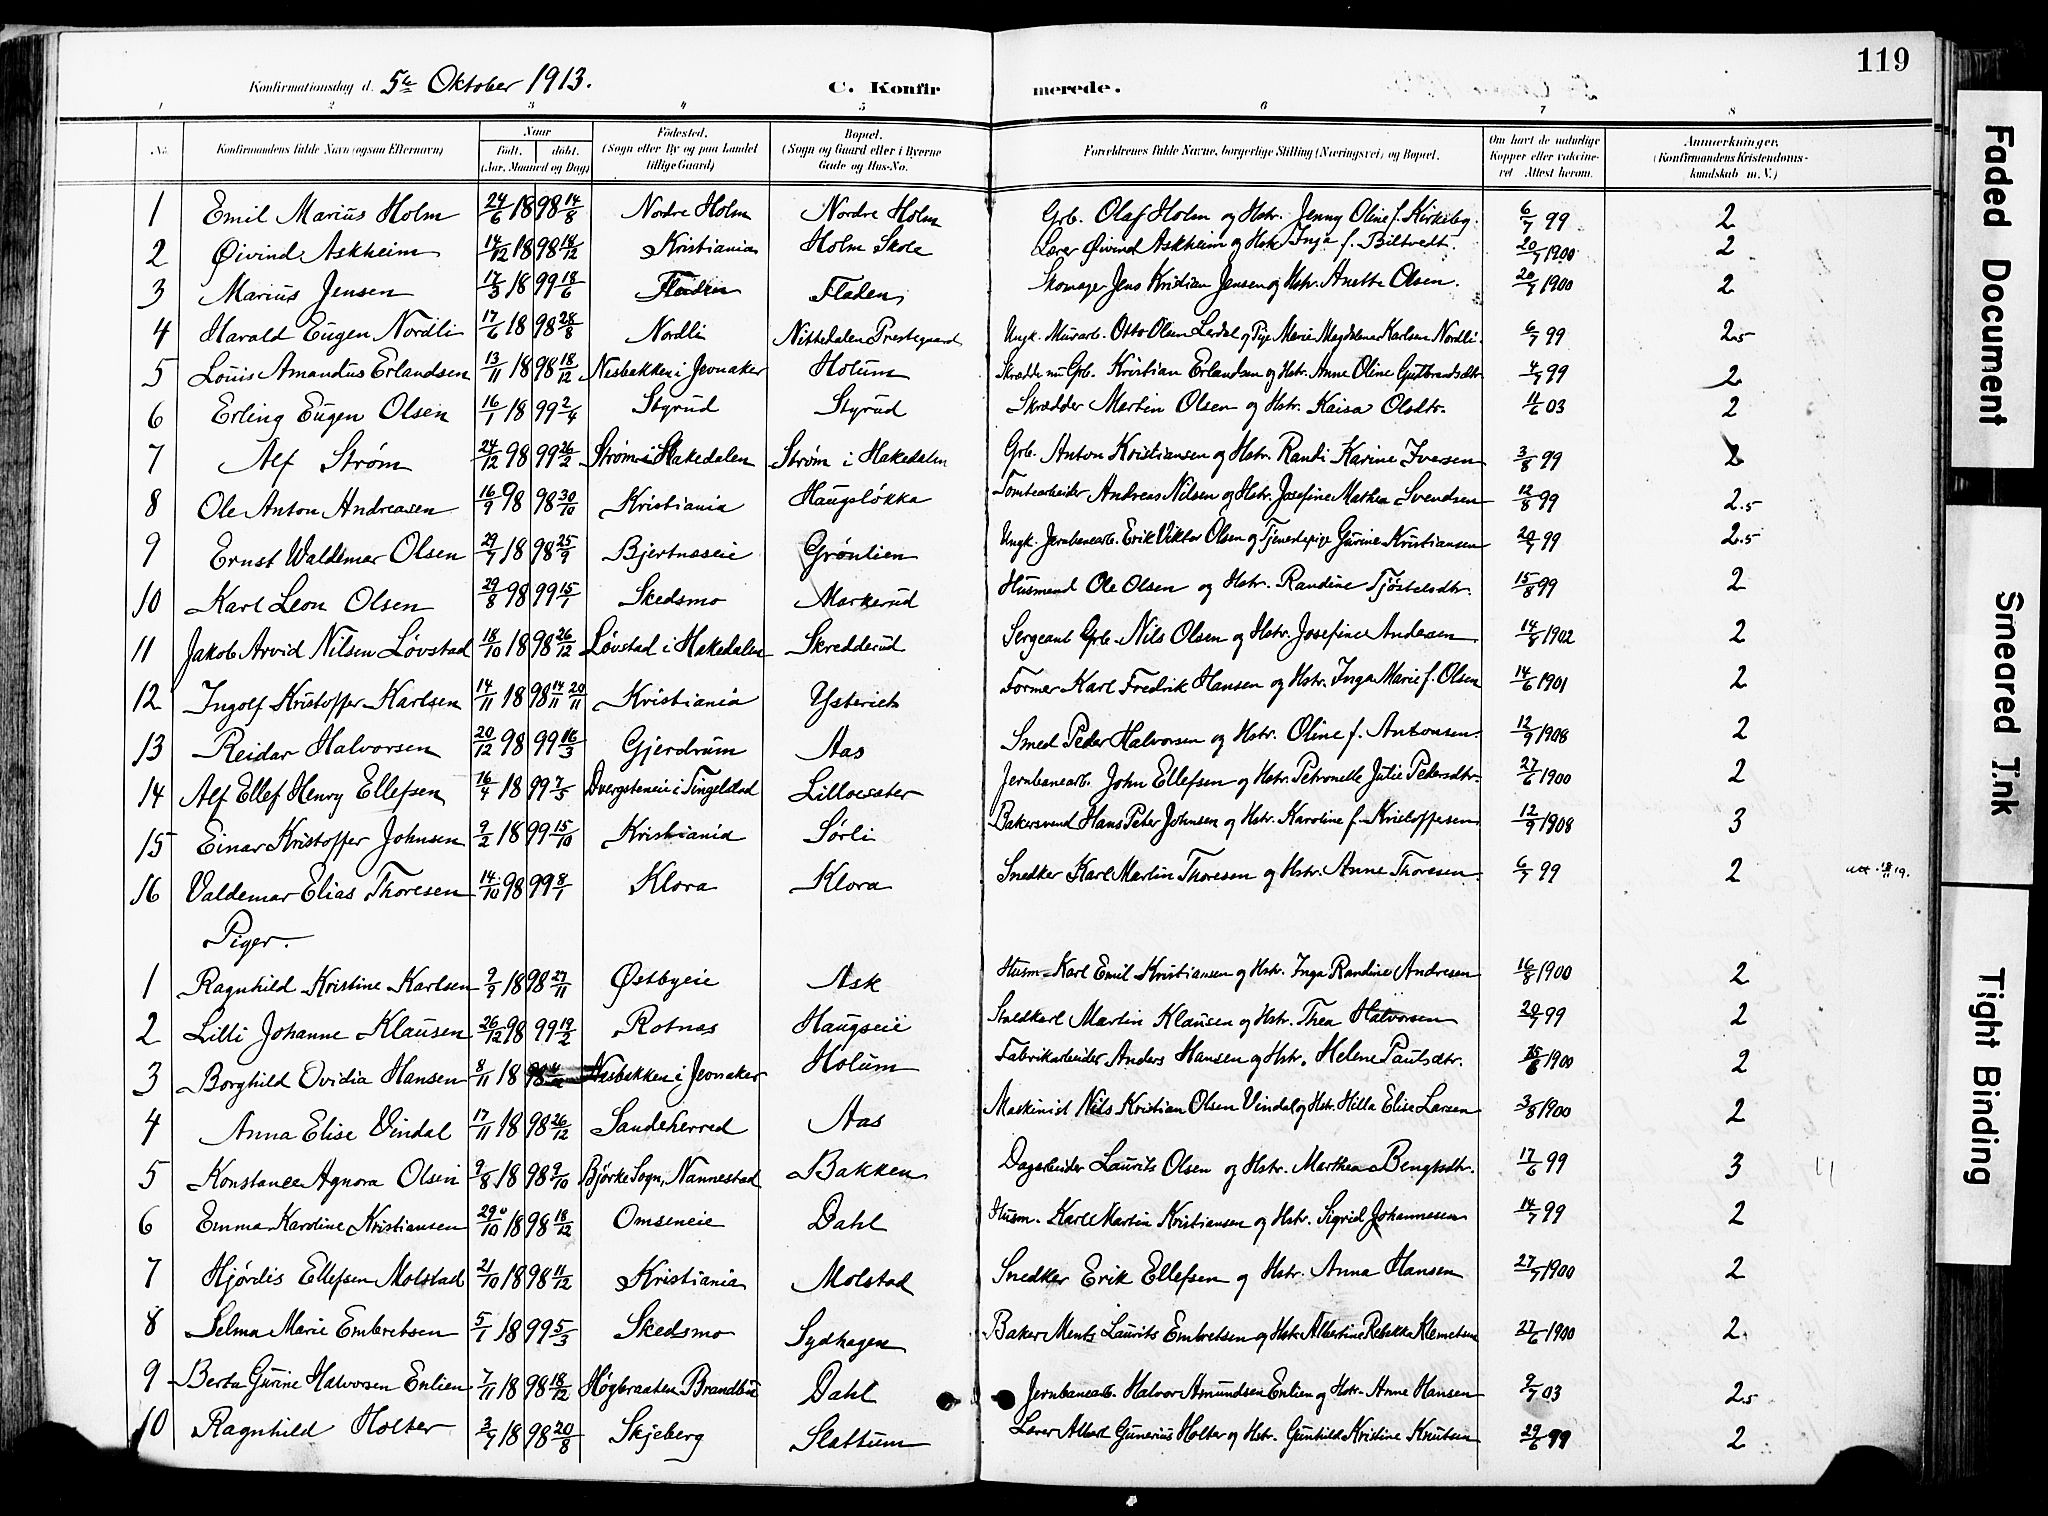 119
Konfirmationsdag d. 5te Oktober 1913. C. Konfirmerede.
1 2 3 4 5 6 7 8
No. Konfirmandens fulde Navn (ogsaa Efternavn) Naar født. døbt. (Aar, Maaned og Dag) Fødested. (Sogn eller By og paa Landet tillige Gaard) Bopæl. (Sogn og Gaard eller i Byerne Gade og Hus-No. Forældrenes fulde Navne, borgerlige Stilling (Næringsvei) og Bopæl. Om havt de naturlige Kopper eller vaksineret. Attest herom. Anmerkninger. (Konfirmandens Kristendomskundskab m. V.)
1 Emil Marius Holm 24/6 1898 14/8 Nordre Holm Nordre Holm Grb. Olaf Holm og Hstr. Jenny Oline f. Kirkeby. 6/7 99 2
2 Øivind Askheim 14/12 1898 18/12 Kristiania Holm Skole Lærer Øivind Askheim og Hstr. Inga f. Biltvedt. 20/7 1900 2
3 Marius Jensen 17/3 1899 18/6 Fladen Fladen Skomager Jens Kristian Jensen og Hstr. Anette Olsen. 20/7 1900 2
4 Harald Eugen Nordli 17/6 1898 28/8 Nordli Nittedalen Prestegaard Ungk. Murarb. Otto Olsen Lerdal og Pige Marie Magdalena Karlsen Nordli. 6/7 99 2.5
5 Louis Amandus Erlandsen 13/11 1898 18/12 Nesbakken i Jevnaker Holum Skrædd. nu Grb. Kristian Erlandsen og Hstr. Anne Oline Gulbrandsdtr 4/7 99 2
6 Erling Eugen Olsen 16/1 1899 2/4 Styrud Styrud Skrædder Martin Olsen og Hstr. Kaisa Olsdtr. 11/6 03 2
7 Alf Strøm 24/12 98 99 26/2 Strøm i Hakedalen Strøm i Hakedalen Grb. Anton Kristiansen og Hstr. Randi Karine Iversen 3/8 99 2
8 Ole Anton Andreasen 16/9 98 98 30/10 Kristiania Haugsløkka Tomtearbeider Andreas Nilsen og Hstr. Josefine Mathea Svendsen 12/8 99 2.5
9 Ernst Waldemar Olsen 29/7 1898 25/9 Bjertnæseie Grønlien Ungk. Jernbanearb. Erik Viktor Olsen og Tjenestepige Gurine Kristiansen 20/7 99 2.5
10 Karl Leon Olsen 29/8 98 99 15/1 Skedsmo Markerud Husmand Ole Olsen og Hstr. Randine Tjøstelsdtr. 15/8 99 2
11 Jakob Arvid Nilsen Løvstad 18/10 1898 26/12 Løvstad i Hakedalen Skredderud Sergeant Grb. Nils Olsen og Hstr. Josefine Andersen 14/8 1902 2
12 Ingolf Kristoffer Karlsen 14/11 1898 14/11 20/11 Kristiania Ysteriet Former Karl Fredrik Hansen og Hstr. Inga Marie f. Olsen 14/6 1901 2
13 Reidar Halvorsen 20/12 98 99 16/3 Gjerdrum Aas Smed Peder Halvorsen og Hstr. Oline f. Antonsen. 12/9 1908 2
14 Alf Ellef Henry Ellefsen 16/4 1899 7/5 Dvergsteneie i Tingelstad Lilloesæter Jernbanearb. John Ellefsen og Hstr. Petronelle Julie Pedersdtr 27/6 1900 2
15 Einar Kristoffer Johnsen 9/2 1899 15/10 Kristiania Sørli Bakersvend Hans Peter Johnsen og Hstr. Karoline f. Kristoffersen. 12/9 1908 3
16 Valdemar Elias Thoresen 14/10 98 99 8/1 Klora Klora Snedker Karl Martin Thoresen og Hstr. Anne Thoresen. 6/7 99 2 18/11 19.
Piger.
1 Ragnhild Kristine Karlsen 9/9 1898 27/11 Østbyeie Ask Husm. Karl Emil Kristiansen og Hstr. Inga Randine Andresen 16/8 1900 2
2 Lilli Johanne Klausen 26/12 98 99 19/2 Rotnæs Haugseie Staldkarl Martin Klausen og Hstr. Thea Halvorsen 20/7 99 2
3 Borghild Ovidia Hansen 8/11 18 98 Nesbakken i Jevnaker Holum Fabrikarbeider Anders Hansen og Hstr. Helene Paulsdtr. 1900 2
4 Anna Elise Vindal 17/11 1898 26/12 Sandeherred Aas Maskinist Nils Kristian Olsen Vindal og Hstr. Hilla Elise Larsen 3/8 1900 2
5 Konstance Agnora Olsen 9/8 1898 9/10 Bjørke Sogn, Nannestad Bakken Dagarbeider Laurits Olsen og Hstr. Marthea Bengtsdtr. 17/6 99 3
6 Emma Karoline Kristiansen 29/10 1898 18/12 Omseneie Dahl Husm. Karl Martin Kristiansen og Hstr. Sigrid Johannesen 14/7 99 2
7 Hjørdis Ellefsen Molstad 21/10 1898 11/12 Kristiania Molstad Snedker Erik Ellefsen og Hstr. Anna Hansen 27/7 1900 2
8 Selma Marie Embretsen 5/1 1899 5/3 Skedsmo Sydhagen Baker Mentz Laurits Embretsen og Hstr. Albertine Rebekka Klemetsen 27/6 1900 2.
9 Berta Gurine Halvorsen Enlien 7/11 1898 18/12 Høgbraaten, Brandbu Dahl Jernbanearb. Halvor Amundsen Enlien og Hstr. Anne Hansen 9/7 03 2.5
10 Ragnhild Holter 3/7 1898 20/8 Skjeberg Slattum Lærer Albert Gunerius Holter og Hstr. Gunhild Kristine Knutsen 29/6 99 2
Faded Document
Smeared Ink
Tight Binding